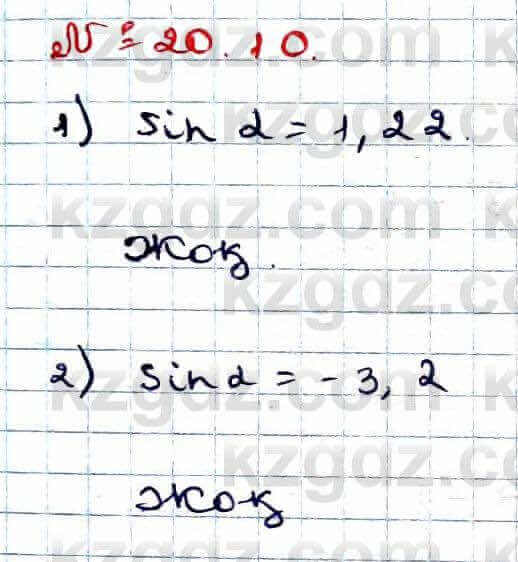 № 20.10.
1) sin α = 1,22.
жоқ.
2) sin α = -3,2
жоқ
kzgdz.com